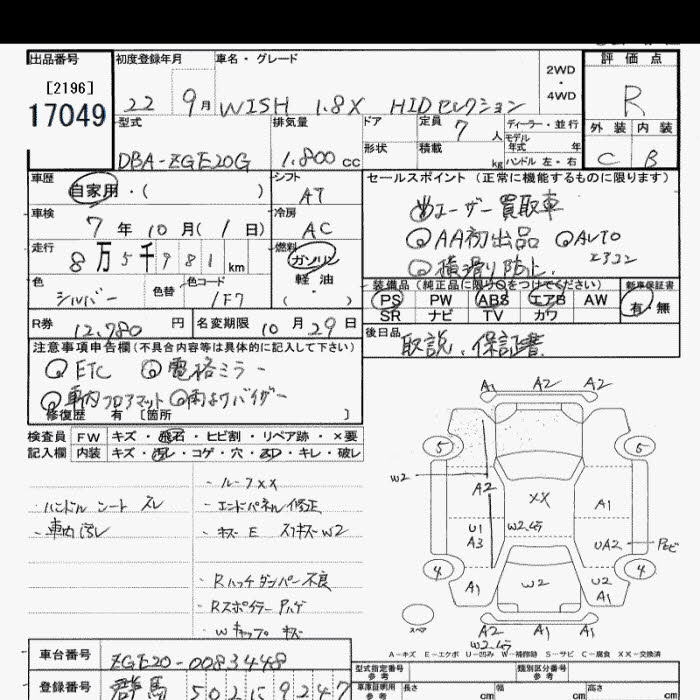 出品番号 初度登録年月 車名・グレード 2WD・4WD 評価点
[2196]
17049 22 9月 WISH 1.8X HIDセレクション R
型式 排気量 ドア 定員 7 人 ディーラー・並行 外装 内装
形状 積載 kg モデル年式 年 ハンドル 左・右
DBA-ZGE20G 1.800 cc C B
車歴 自家用・( ) シフト AT セールスポイント (正常に機能するものに限ります)
車検 7年10月(1日) 冷房 AC ユーザー買取車
走行 8万5千981km 燃料 ガソリン 軽油・( ) AA初出品 AUTOエアコン
横滑り防止
色 シルバー 色替 色コード 1F7 装備品(純正品に限り○をつけてください) 新車保証書
PS PW ABS エアB AW 有・無
SR ナビ TV カワ
R券 12,780円 名変期限 10月29日 後日品 取説、保証書
注意事項申告欄(不具合内容等は具体的に記入して下さい)
ETC 電格ミラー
車内フロアマット 雨よけバイザー
修復歴 有 [箇所 ]
検査員 FW キズ・飛石・ヒビ割・リペア跡・×要
記入欄 内装 キズ・汚レ・コゲ・穴・スレ・キレ・破レ
・ルーフXX
・ハンドル シート スレ ・エンドパネル修正
・車内汚レ ・キズ E スリキズ W2
・Rハッチダンパー不良
・Rスポイラー
・Wキャップ キズ
A1 A2 A2
5 5
W2 A2 XX A1
U1 W2
A3 UA2
4 4
A1 W2 U2
A1
スペア A2 A1 A1
W2
A-キズ E-エクボ U-凹み W-補修跡 S-サビ C-腐食 XX-交換済
車台番号 ZGE20-0083448 型式指定番号 参考 類別区分番号 参考
登録番号 群馬 502 9247 車庫証明用 参考 長さ cm 幅 cm 高さ cm